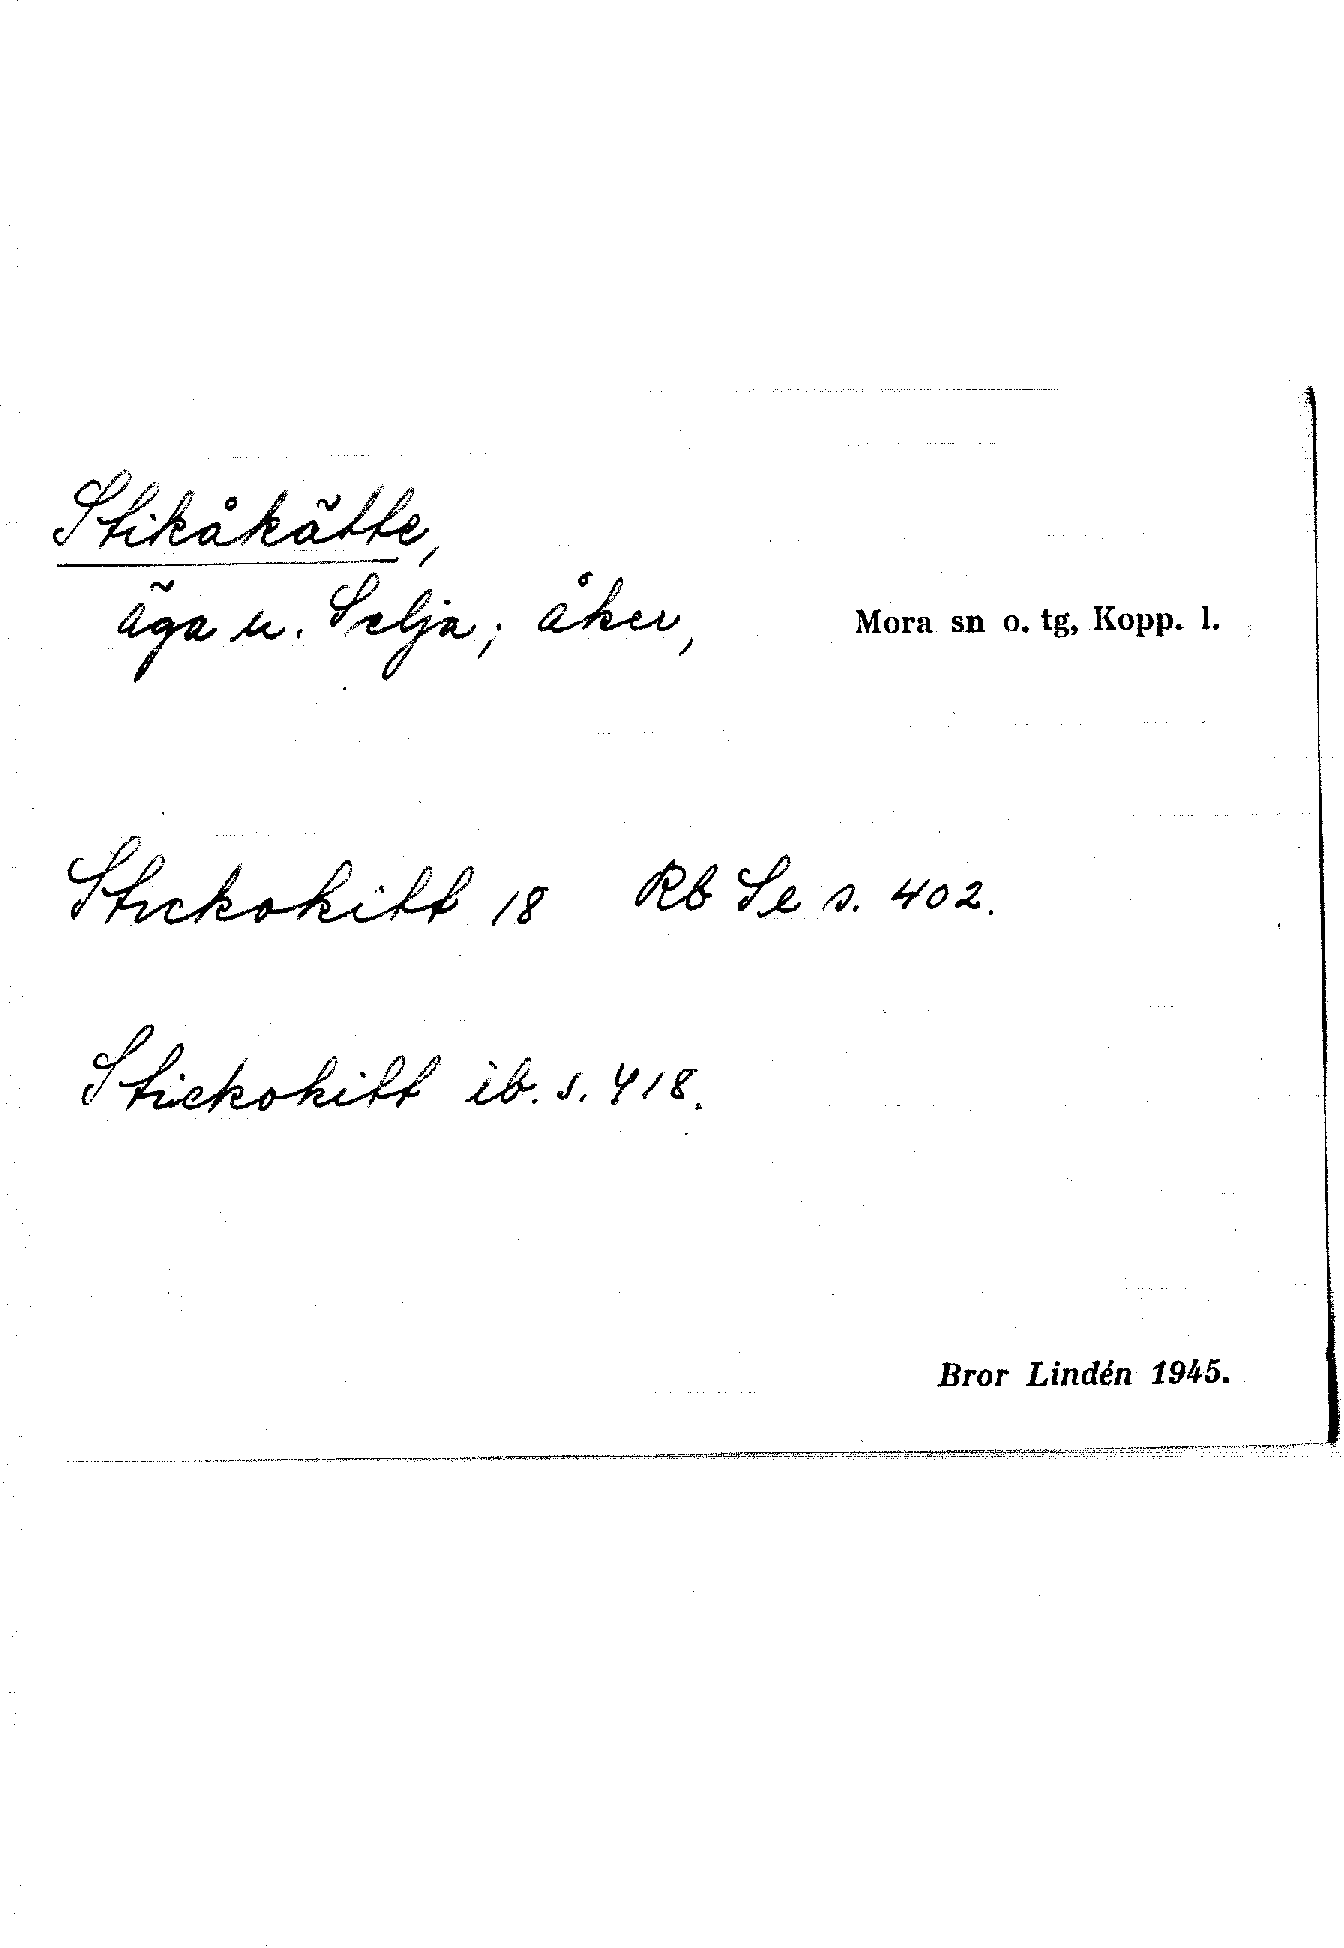 Stikåkätte,
äga u. Selja; åker, Mora sn o. tg, Kopp. l.
Stickokitt 18 Rb Se s. 402.
Stickokitt ib. s. 418.
Bror Lindén 1945.